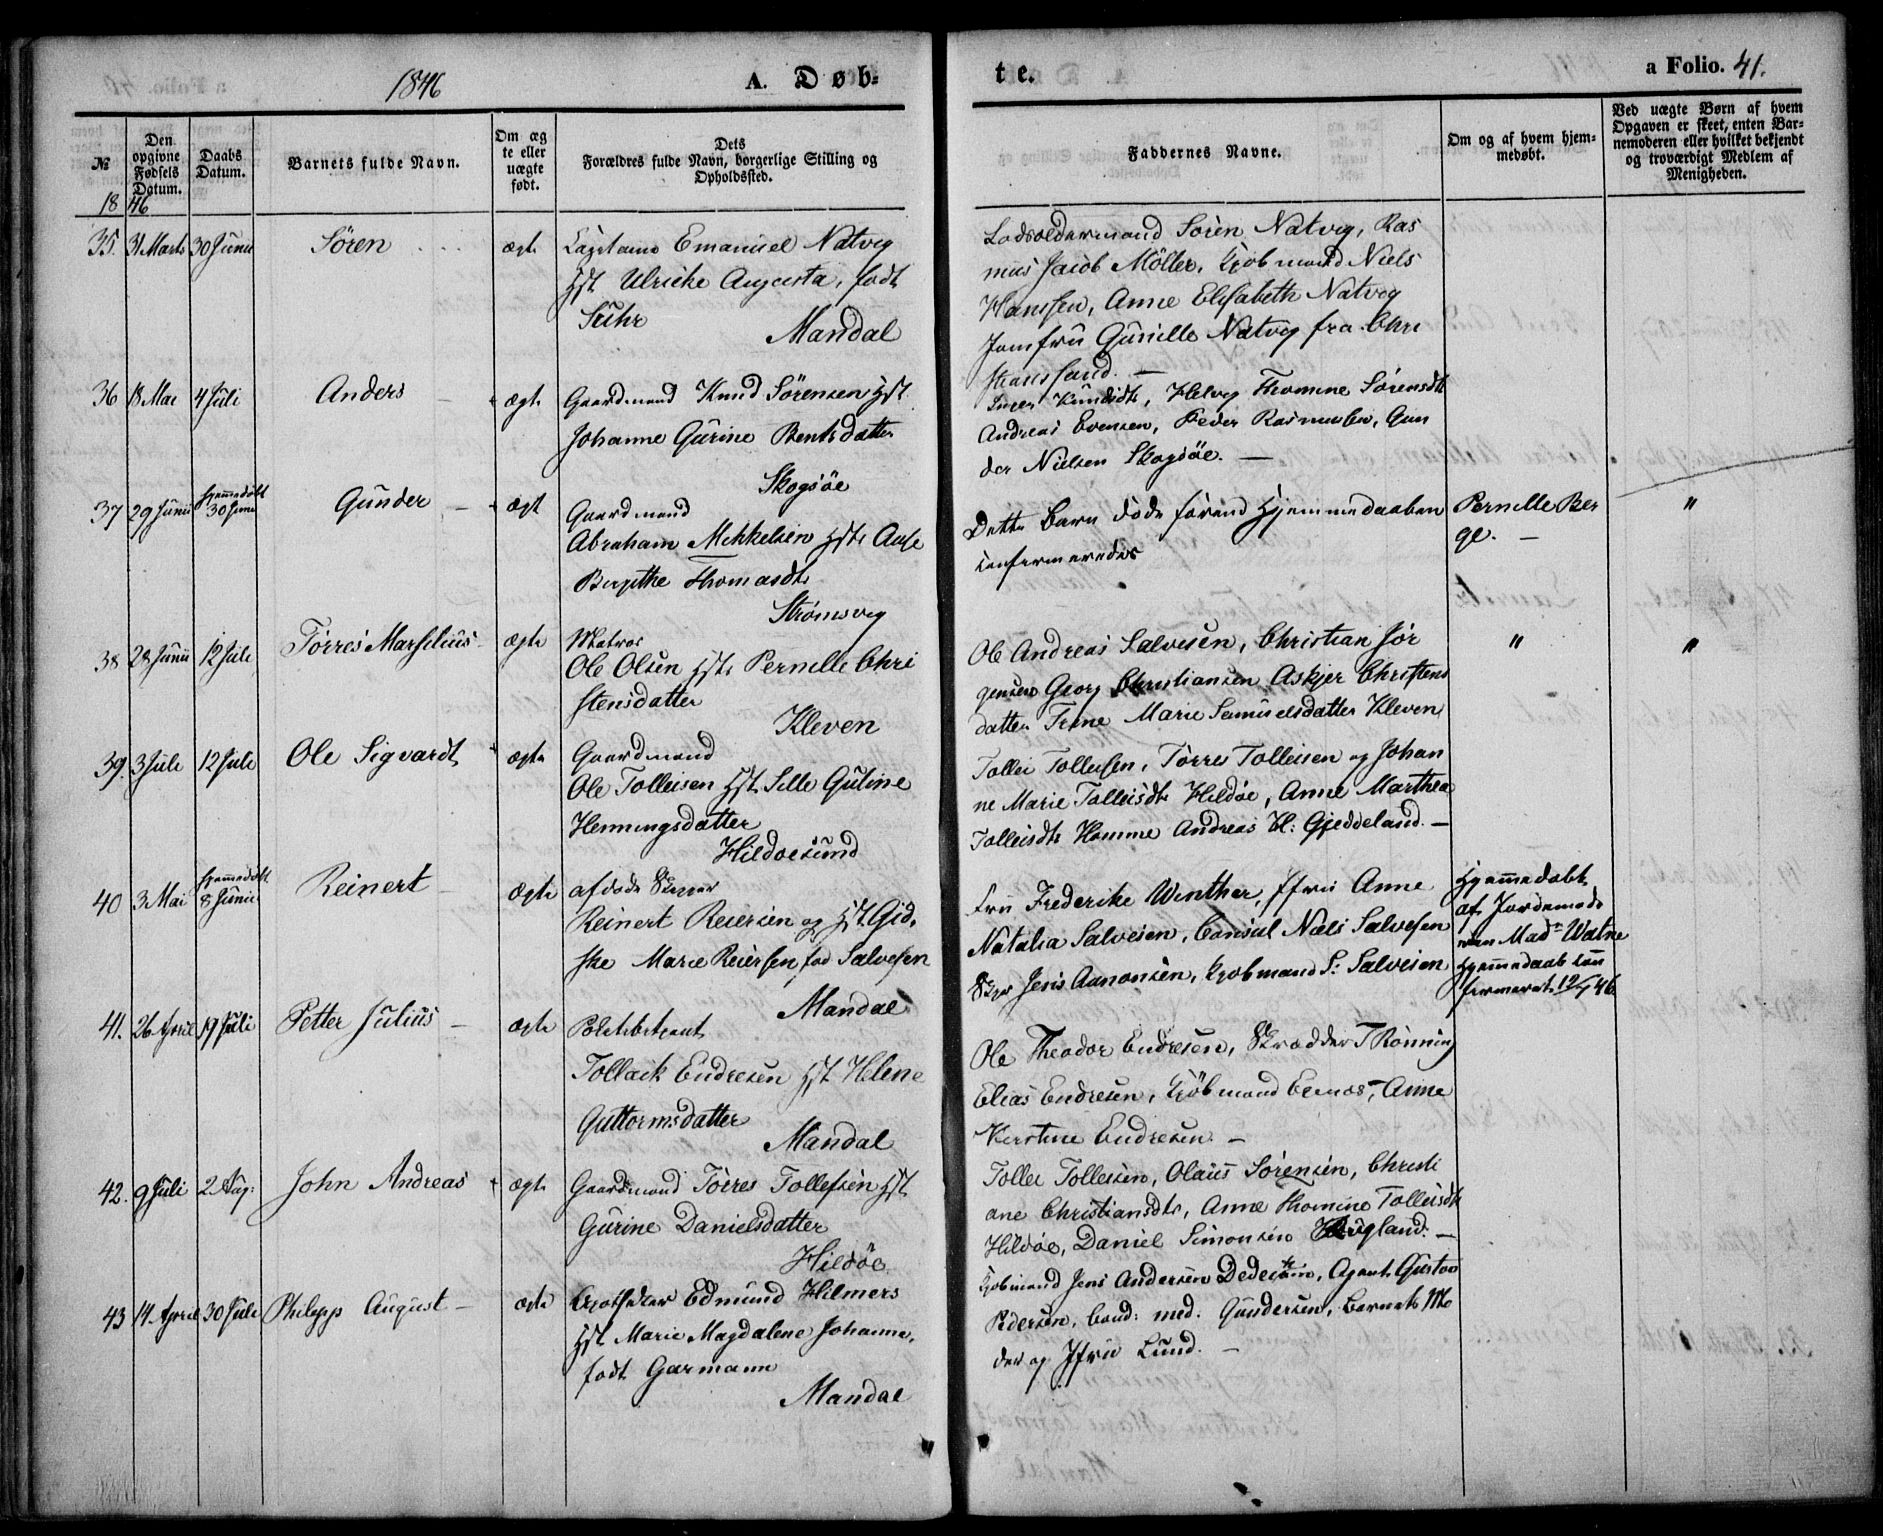 1846 A. Døb-
te. a Folio. 41.
No
Den opgivne Fødsels Datum.
Daabs Datum.
Barnets fulde Navn.
Om ægte eller uægte født.
Dets Forældres fulde Navn, borgerlige Stilling og Opholdssted.
Faddernes Navne.
Om og af hvem hjemmedøbt.
Ved uægte Børn af hvem Opgaven er skeet, enten Barnemoderen eller hvilket bekjendt og troværdigt Medlem af Menigheden.
1846
35. 31 Marts 30 Junii Sören ægte
Emanuel Natvig
Hst Ulricke Augusta, født
Suhr
Mandal
Lodsoldermand Sören Natvig, Ras
mus Jacob Möller, Kjöbmand Niels
Hanssen, Anne Elisabeth Natvig
Jomfru Gunille Natvig fra Chri
stianssand. —
36 18 Mai 4 Juli Anders ægte
Gaardmand Knud Sörensen Hst
Johanne Gurine Bentsdatter
Skogsöe
Helvig Thomine Sörensdt
Andreas Evensen, Peder Rasmusen, Gun
der Nielsen Skogsöe. —
37 29 Junii hjemmedöbt 30 Junii Gunder ægt
Gaardmand
Abraham Mikkelsen Hst Aase
Birgithe Thomasdt
Strömsvig
Dette Barn döde förend Hjemmedaaben
confirmeredes
Pernille Ber
ge. —
"
38 28 Junii 12 Juli Törres Marselius ægte
Matros
Ole Olsen Hst Pernille Chri
stensdatter
Kleven
Ole Andreas Salvesen, Christian Jör
gensen Georg Christiansen Askjer Christens
datter Trine Marie Samuelsdatter Kleven
" "
39. 3 Juli 12 Juli Ole Sigvardt ægte
Gaardmand
Ole Tolleisen Hst Sille Gutine
Henningsdatter
Hildoesund
Tollei Tollefsen, Törres Tolleisen og Johan
ne Marie Tolleisdt Hildöe, Anne Marthea
Tolleisdt Homme Andreas Gjeddeland. —
40 3 Mai hjemmedöbt 8 Junii Reinert — ægte
afdöde Skipper
Reinert Reiersen og Hst Gid
ske Marie Reiersen, fød Salvesen
Mandal
Fru Frederike Winther, Jfru Anne
Natalia Salvesen, Consul Niels Salvesen
Jens Aanonsen, Kjöbmand S: Salvesen
Hjemmedøbt
af Jordemode
ren Mad
Hjemmedaab con
firmeret 12/7 46.
41. 26 April 19 Juli Petter Julius — ægte
Politibetjent
Tollack Endresen Hst Helene
Guttormsdatter
Mandal
Ole Theodor Endresen, Skrædder T Rönning
Elias Endresen, Kjöbmand Anne
Kirstine Endresen. —
42. 9 Juli 2 Aug: John Andreas ægte
Gaardmand Törres Tollefsen Hst
Gurine Danielsdatter
Hildöe
Tollei Tolleisen, Olaus Sörensen, Christi
ane Christiansdt, Anne Thomine Tolleisdt
Hildöe, Daniel Simonsen —
43 14 April 30 Juli Philipp August — ægte
Apotheker Edmund Hilmers
Hst Marie Magdalene Johanne,
født Garmann
Mandal
Kjöbmand Jens Andersen Agent Gustav
Pedersen, Cand: med. Gundersen, Barnets Mo
der og Jfru Lund. —